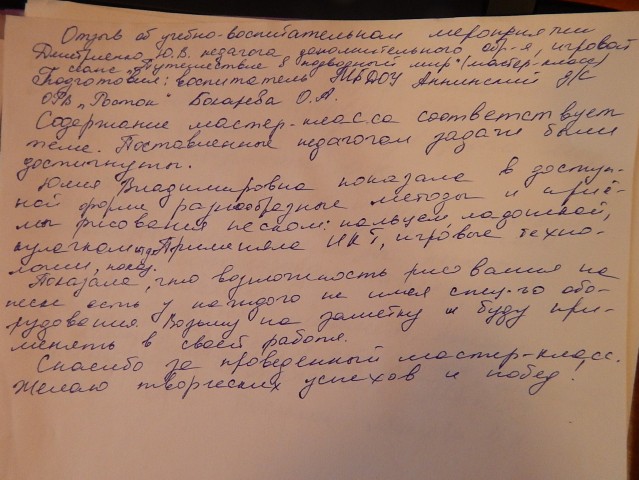 Отзыв об учебно-воспитательном мероприятии
Дмитриенко Ю.В. педагога дополнительного обр-я, игровой
сеанс "Путешествие в подводный мир" (мастер-класс)
Подготовил: воспитатель МБДОУ Аннинский д/с
ОРВ "Росток" Бокарева О.А.
Содержание мастер-класса соответствует
теме. Поставленные педагогом задачи были
достигнуты.
Юлия Владимировна показала в доступ-
ной форме разнообразные методы и приё-
мы рисования песком: пальцем, ладошкой,
кулачком и др. Применяла ИКТ, игровые техно-
логии, показ.
Показала, что возможность рисования на
песке есть у каждого не имея спец-го обо-
рудования. Возьму на заметку и буду при-
менять в своей работе.
Спасибо за проведенный мастер-класс.
Желаю творческих успехов и побед!